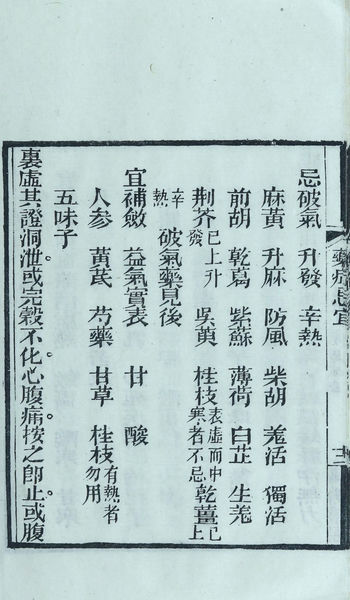 藥病忌宜
忌破氣 升發 辛熱
麻黃 升麻 防風 柴胡 羗活 獨活
前胡 乾葛 紫蘇 薄荷 白芷 生羌
荆芥已上升發 吳萸 桂枝表虛而中寒者不忌乾薑已上
辛熱 破氣藥見後
宜補斂 益氣實表 甘 酸
人參 黃芪 芍藥 甘草 桂枝有熱者勿用
五味子
裏虛其證洞泄。或完穀不化。心腹痛。按之卽止。或腹